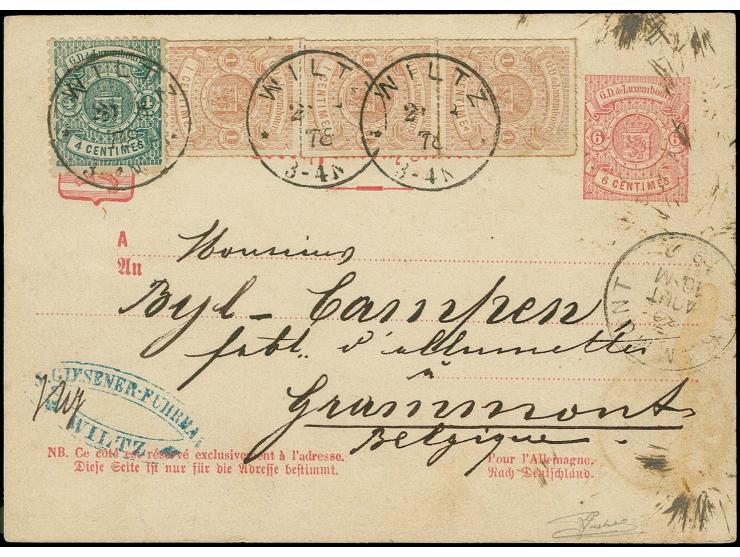 G.D. de Luxembourg
4 CENTIMES
1 CENTIME
1 CENTIME
1 CENTIME
WILTZ
WILTZ
21
78
3-4N
WILTZ
21
78
3-4N
G.D. de Luxembourg
6 6
6 CENTIMES
A
An
Monsieur
Byl-Campen
fabt. d'allumettes
à
Grammont
Belgique
AOUT
S. GIESENER-FUHRMAN
WILTZ
NB. Ce côté est réservé exclusivement à l'adresse.
Diese Seite ist nur für die Adresse bestimmt.
Pour l'Allemagne.
Nach Deutschland.